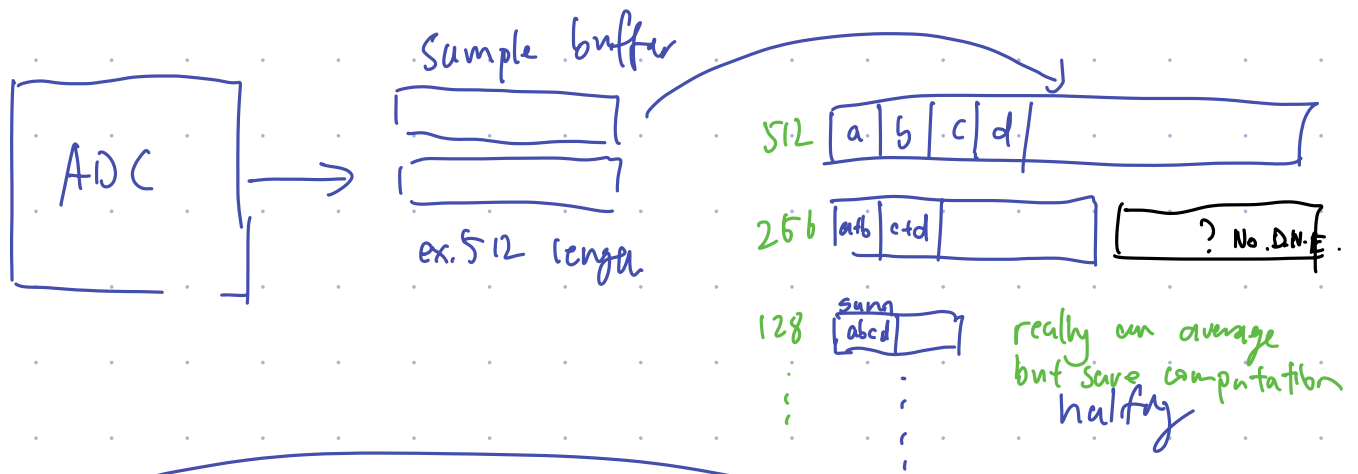 sample buffer
ADC
ex. 512 lenga
512 a b c d
256 a+b c+d ? No. D.N.E.
sum
128 abcd
really an average
but save computation
halfing